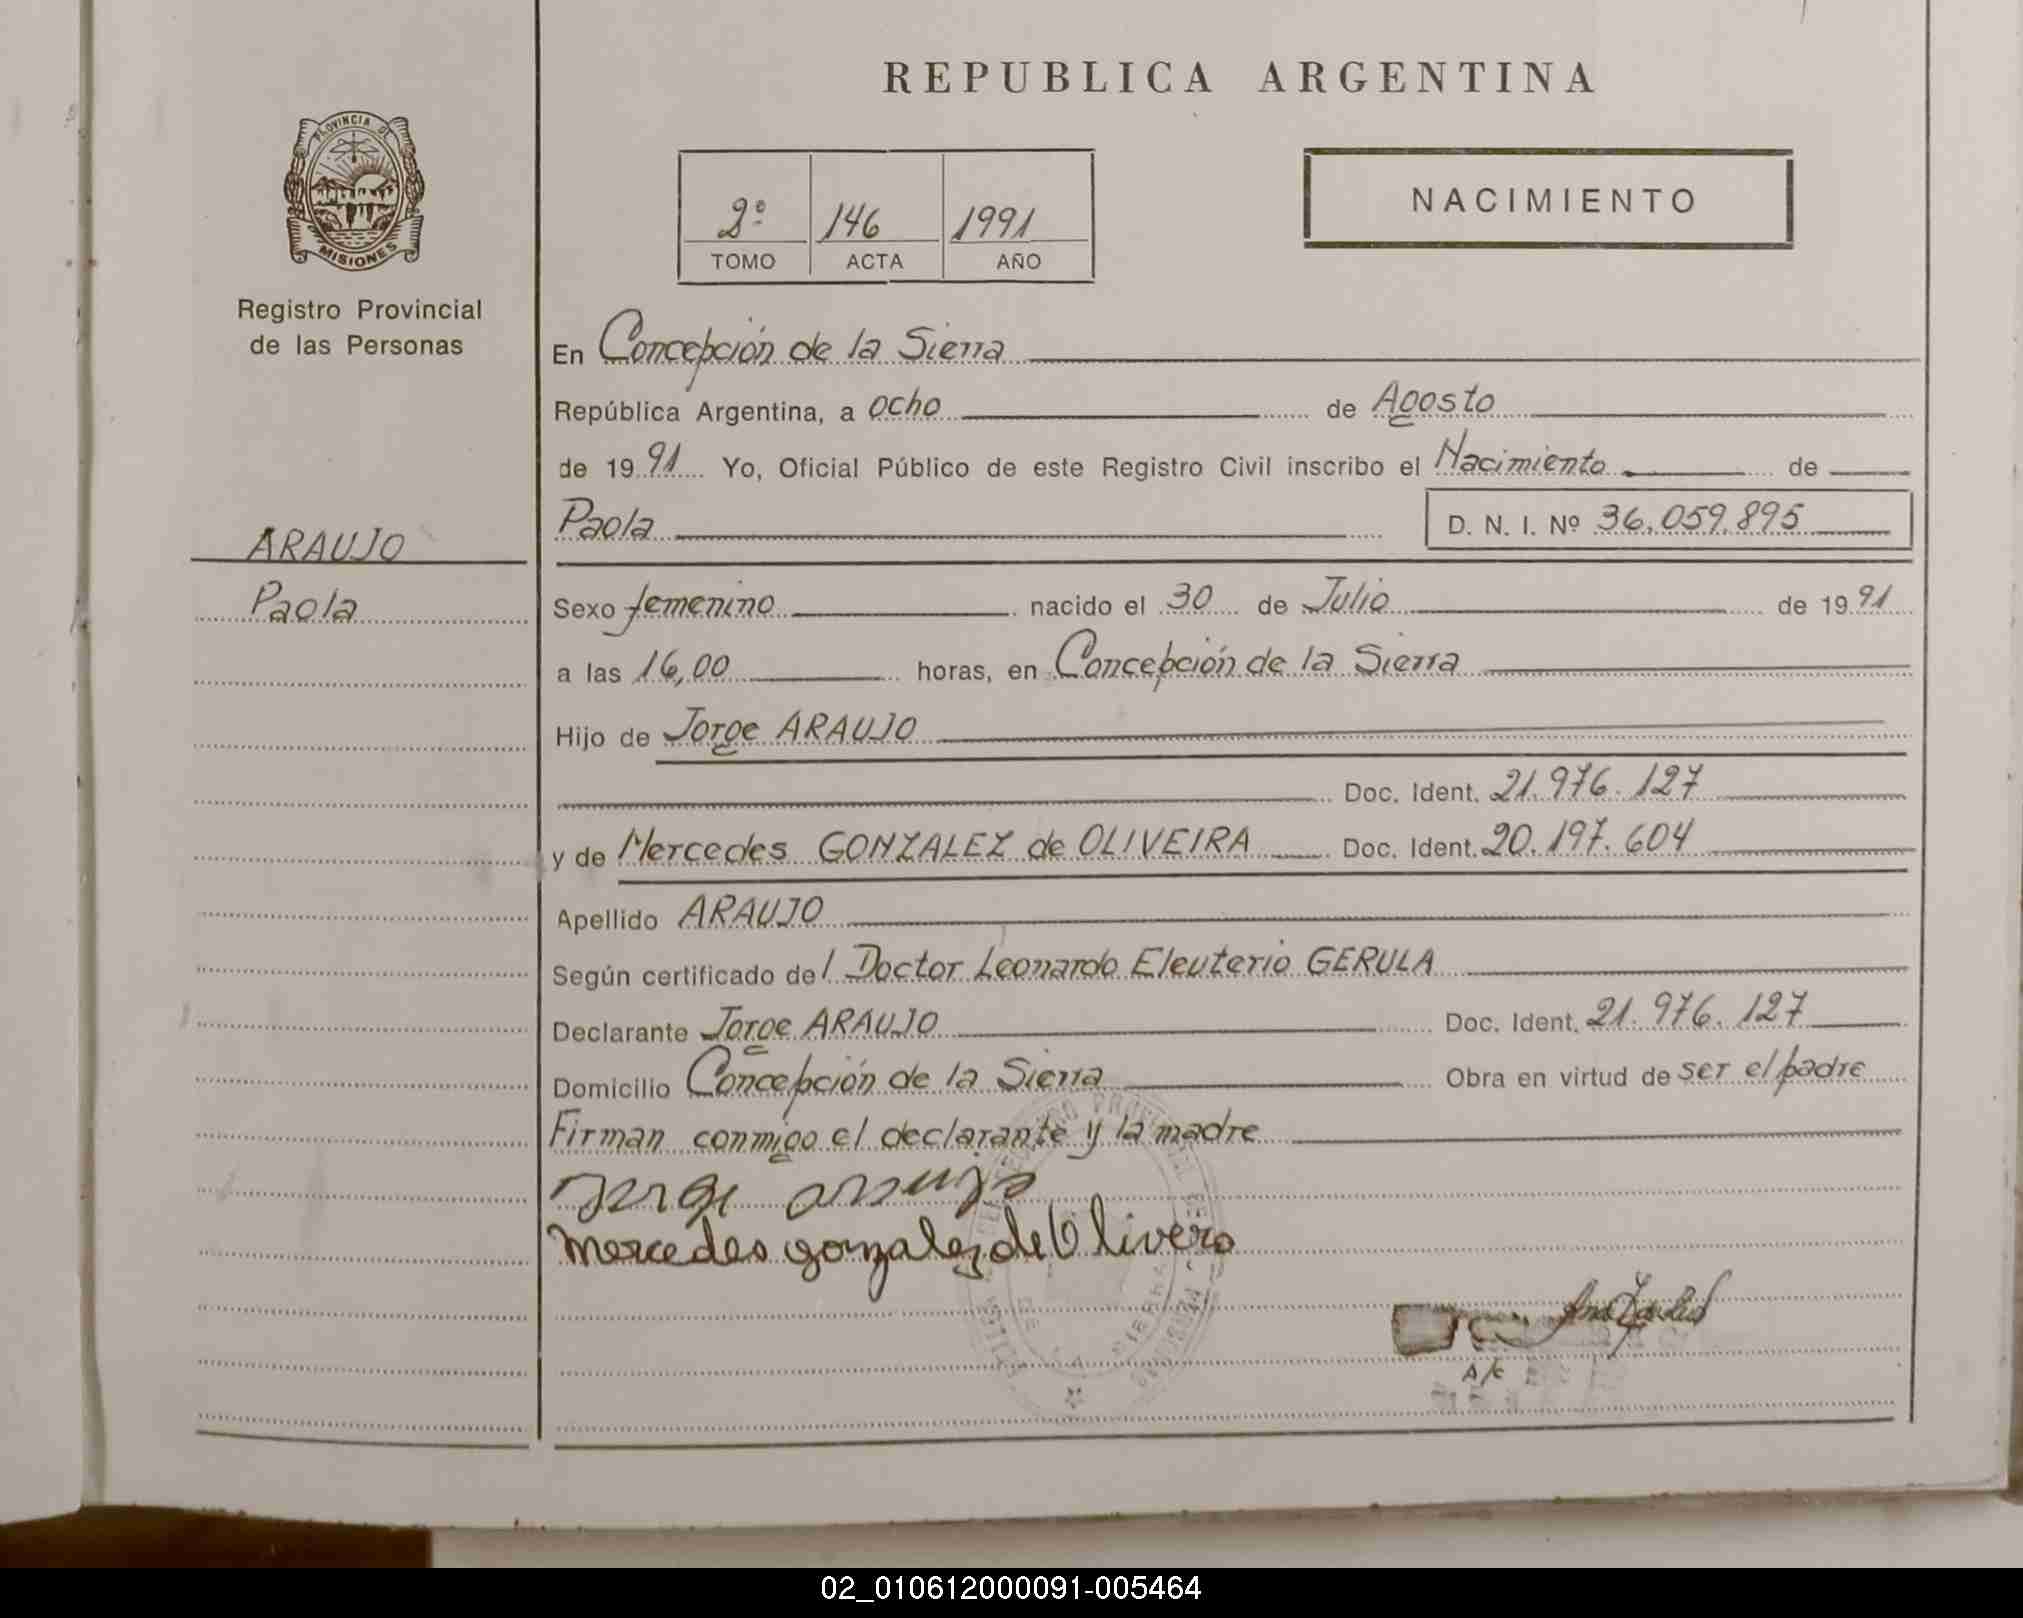 REPUBLICA ARGENTINA
PROVINCIA DE
MISIONES
Registro Provincial
de las Personas
2º 146 1991
TOMO ACTA AÑO
NACIMIENTO
En Concepción de la Sierra
República Argentina, a ocho de Agosto
de 1991 Yo, Oficial Público de este Registro Civil inscribo el Nacimiento de
Paola D. N. I. Nº 36.059.895
ARAUJO
Paola
Sexo femenino nacido el 30 de Julio de 1991
a las 16,00 horas, en Concepción de la Sierra
Hijo de Jorge ARAUJO
Doc. Ident. 21.976.127
y de Mercedes GONZALEZ de OLIVEIRA Doc. Ident. 20.197.604
Apellido ARAUJO
Según certificado del Doctor Leonardo Eleuterio GERULA
Declarante Jorge ARAUJO Doc. Ident. 21.976.127
Domicilio Concepción de la Sierra Obra en virtud de ser el padre
Firman conmigo el declarante y la madre
Jorge araujo
Mercedes gonzalez de Olivera
A/c
02_010612000091-005464